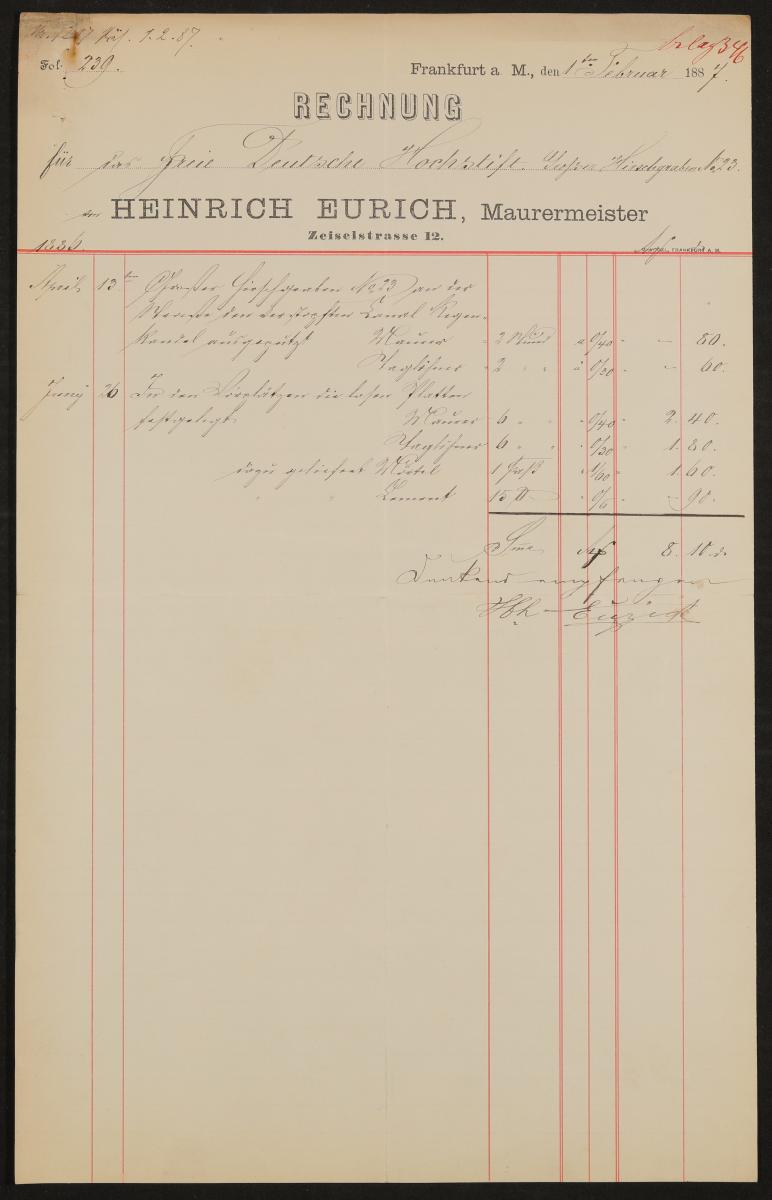 1.2.87.
Belag 346
Fol. 239.
Frankfurt a. M., den 1ten Februar 1887.
RECHNUNG
für das Freie Deutsche Hochstift. Großer Hirschgraben No 23.
von HEINRICH EURICH, Maurermeister
Zeiselstrasse 12.
1886.
FRANKFURT A. M.
April 13ten Großer Hirschgraben No 23 an der
Straße den verstopften Canal Regen-
kandel ausgeputzt Maurer 2 Stund a 0/40 — 80.
Taglöhner 2 " " a 0/30 — 60.
Juny 26 In den Vorplätzen die losen Platten
festgelegt Maurer 6 " " 0/40 2. 40.
Taglöhner 6 " " 0/30 1. 80.
dazu geliefert Mörtel 1 Faß 1/60 1 60.
" " Cement 15 ℔ 0/6 — 90.
Sma M 8. 10 d.
Dankend empfangen
Hch Eurich